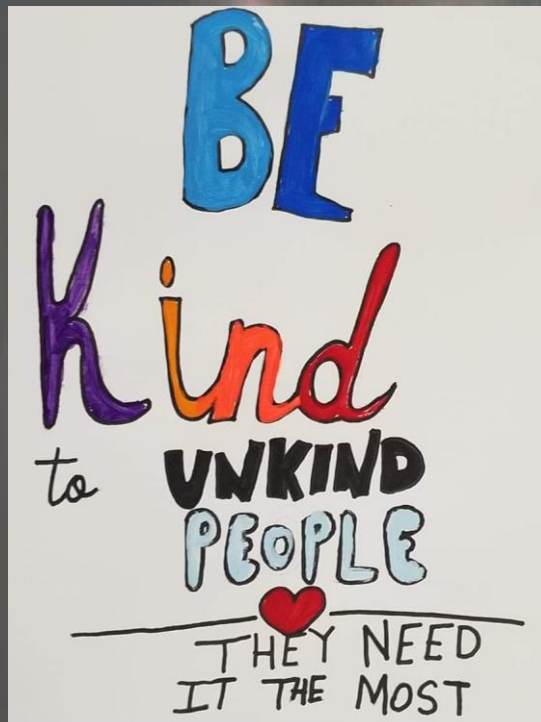 BE
Kind
to UNKIND
PEOPLE
THEY NEED
IT THE MOST